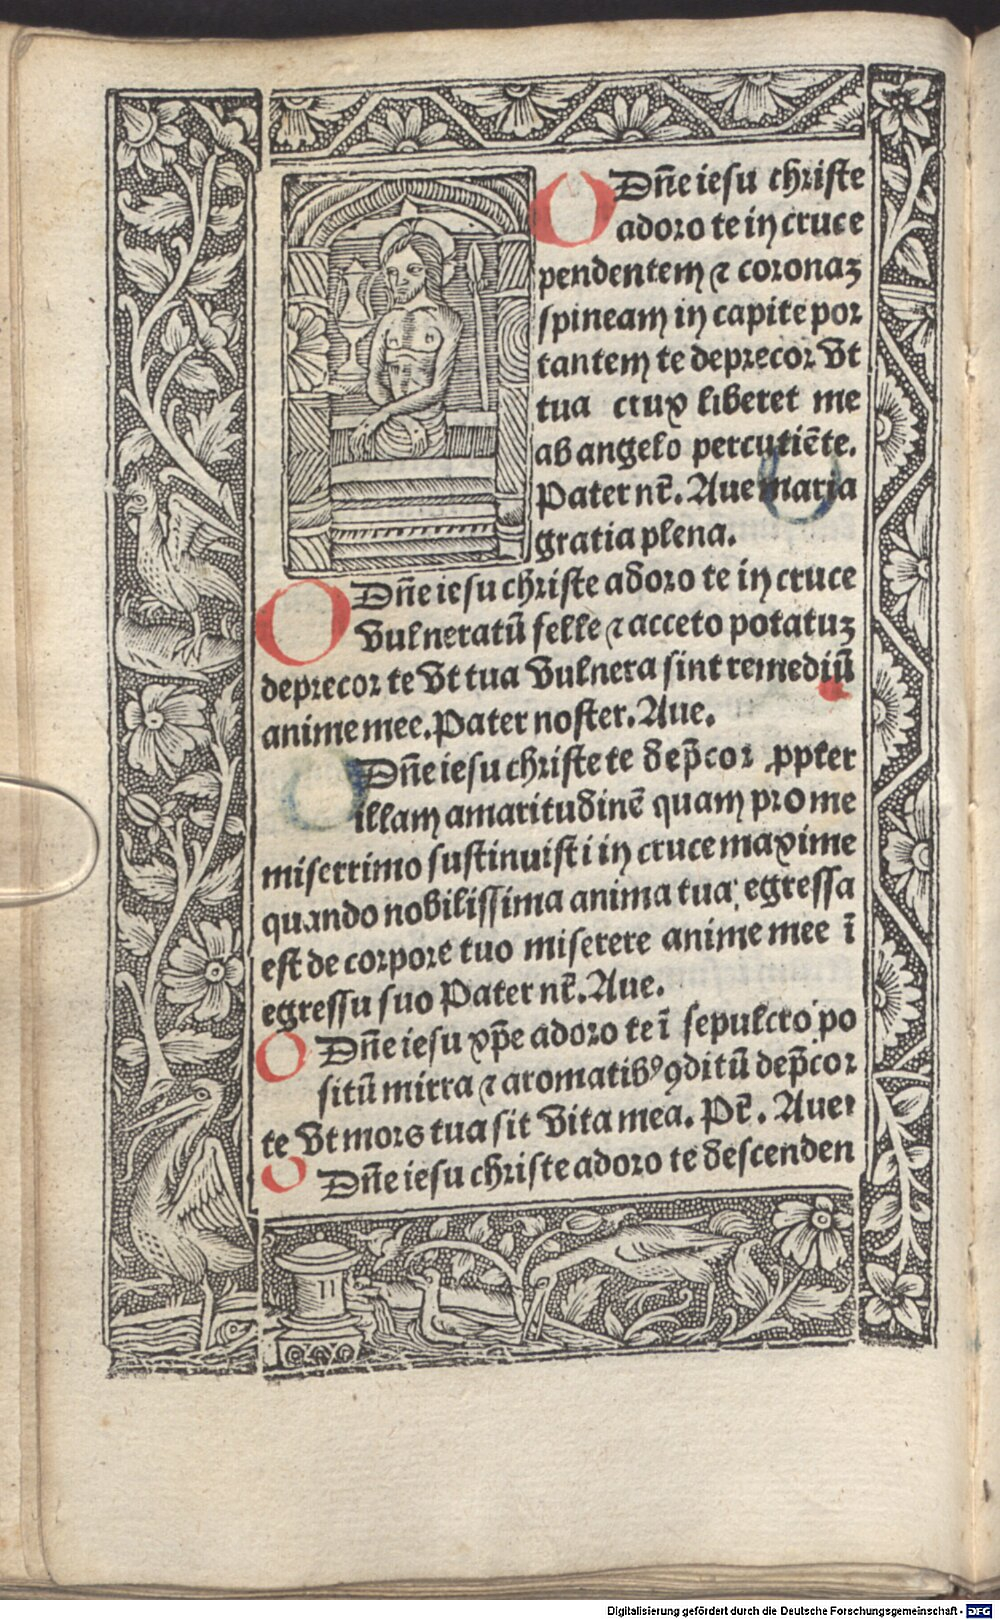 O Dn̄e iesu christe
adoro te in cruce
pendentem ⁊ coronaꝫ
spineam in capite por
tantem te deprecor vt
tua crux liberet me
ab angelo percutiēte.
Pater nr̄. Aue maria
gratia plena.
O Dn̄e iesu christe adoro te in cruce
vulneratū felle ⁊ acceto potatuꝫ
deprecor te vt tua vulnera sint remediū
anime mee. Pater noster. Aue.
O Dn̄e iesu christe te dep̄cor ꝓpter
illam amaritudinē quam pro me
miserrimo sustinuisti in cruce maxime
quando nobilissima anima tua egressa
est de corpore tuo miserere anime mee ī
egressu suo Pater nr̄. Aue.
O Dn̄e iesu xp̄e adoro te ī sepulcro po
sitū mirra ⁊ aromatibꝰ ꝯditū dep̄cor
te vt mors tua sit vita mea. Pr̄. Aue.
O Dn̄e iesu christe adoro te descenden
Digitalisierung gefördert durch die Deutsche Forschungsgemeinschaft - DFG